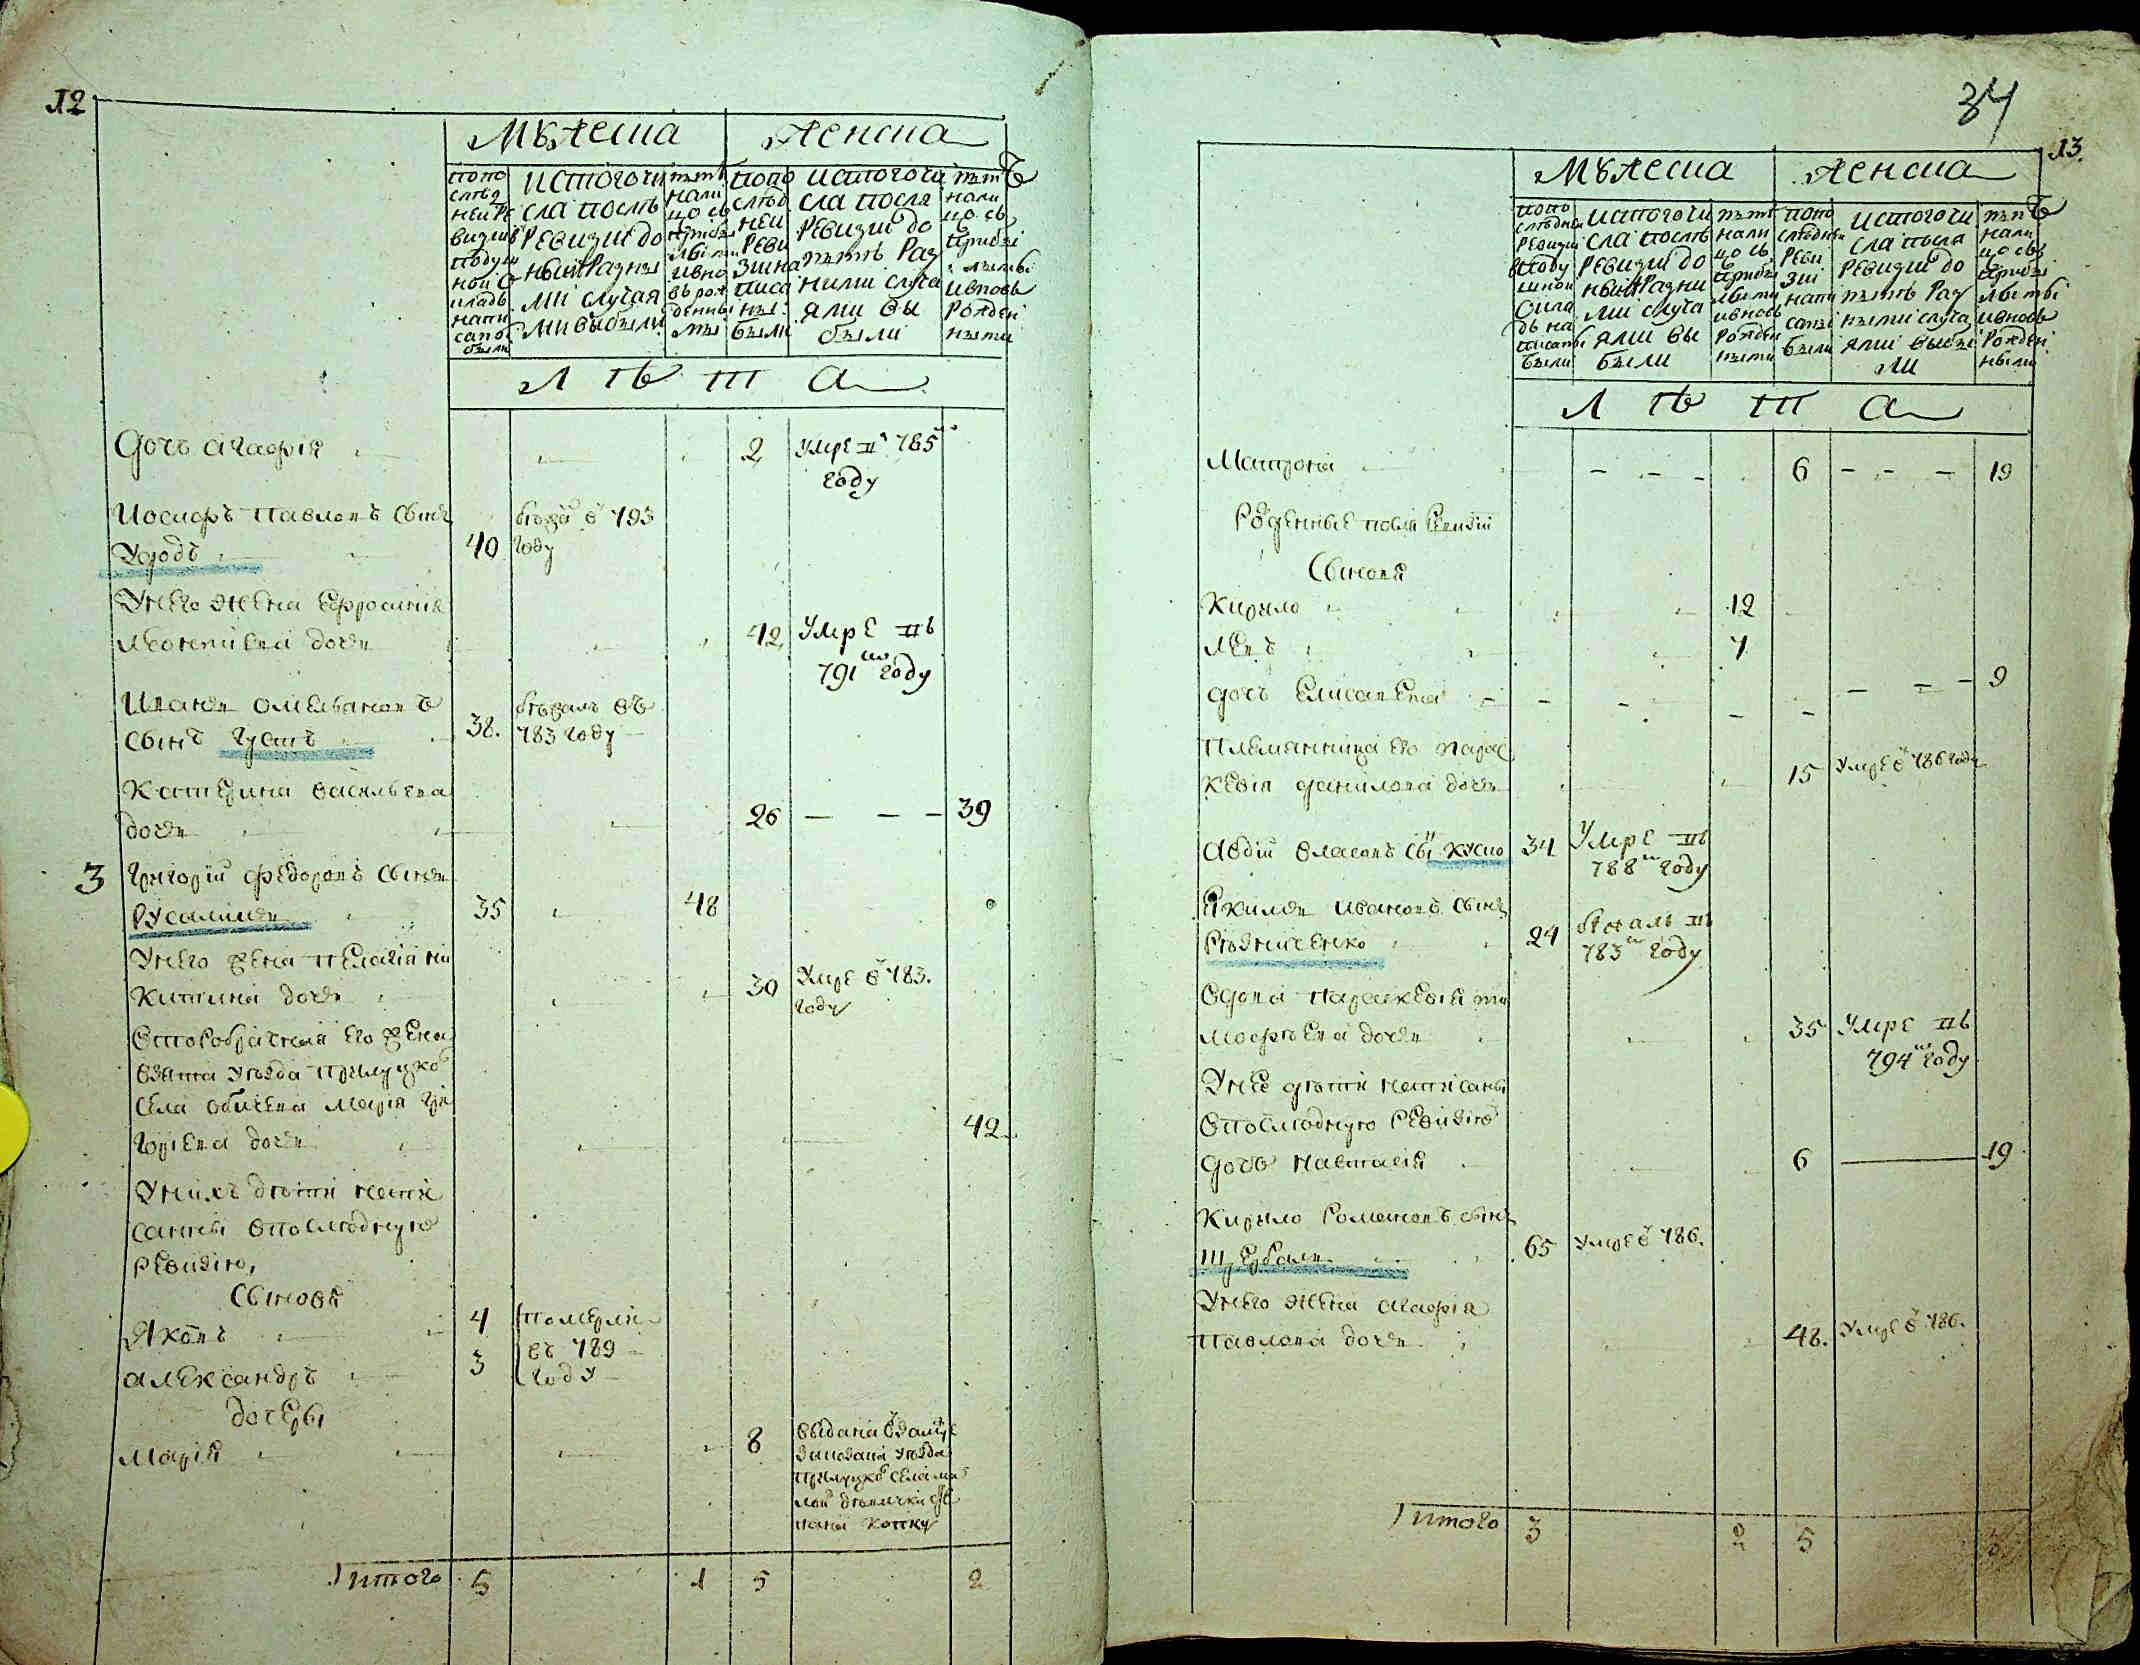 12
Мужеска
Женска
по по
следней ре
визии в
подуш
ной о
кладъ
напи
саны
были
ис того чи
сла послѣ
ревизии до
ныне разны
ми случая
ми выбыли
нали
цо съ
прибы
лыми
и вно
въ рож
денны
ми
по по
слѣд
ней
реви
зии на
писа
ны
были
ис того чи
сла после
ревизии до
нынѣ раз
ными случа
ями вы
были
нынѣ
нали
цо съ
прибы
лыми
и вновь
рожден
ными
Л ѣ т а
Дочь Агафия 2 умре в 785
году
Иосифъ Павловъ сынъ
40 бежа в 793
году
У него жена Ефросиния
Леонтиева дочь 42 умре въ
791 году
Иванъ Омельяновъ
сынъ Гусакъ 38. бѣжалъ въ
783 году
Катерина Васильева
дочь 26 — — — 39
3 Григорий Федоровъ сынъ
Русалимъ 35 48
У него жена Пелагия Ни
китина дочь 30 умре в 783.
году
Второбрачная его жена
взята уѣзда Прилуцко
села Обичева Мария Гри
горьева дочь 42
У нихъ дѣти напи
санны в последную
ревизию,
Сыновя
Яковъ 4 померли
въ 789
году
Александръ 3
дочеры
Мария 8 выдана в замуж
уезда
Прилуцко села Ма
лой Девички
Итого 5 1 5 2
34
13.
Мужеска
Женска
по по
следней
ревизии
в поду
шной
окла
дъ на
писаны
были
ис того чи
сла послѣ
ревизии до
ныне разни
ми случа
ями вы
были
нынѣ
нали
цо съ
прибы
лыми
и вновь
рожден
ными
по по
следней
реви
зии
напи
саны
были
ис того чи
сла после
ревизии до
нынѣ раз
ными случа
ями выбы
ли
нынѣ
нали
цо съ
прибы
лыми
и вновь
рожден
ными
Л ѣ т а
Матрона — — — 6 — — — 19
Рожденные после ревизии
Сыновя
Кирило 12
Левъ 7
дочь Елисавета 9
Племянница его Парас
кевия Данилова дочь 15 умре в 786 году
Авдий Власовъ сынъ Кусно 34 умре въ
788 году
Якимъ Ивановъ сынъ
Резниченко 24 бежалъ въ
783 году
Вдова Параскевия Ти
мофеева дочь 35 умре въ
794 году
У нее дети написаны
в последную ревизию
дочь Настасия 6 — 19
Кирило Романовъ сынъ
Щербакъ 65 умре в 786.
У него жена Агафия
Павлова дочь 48. умре в 786.
Итого 3 2 5 3